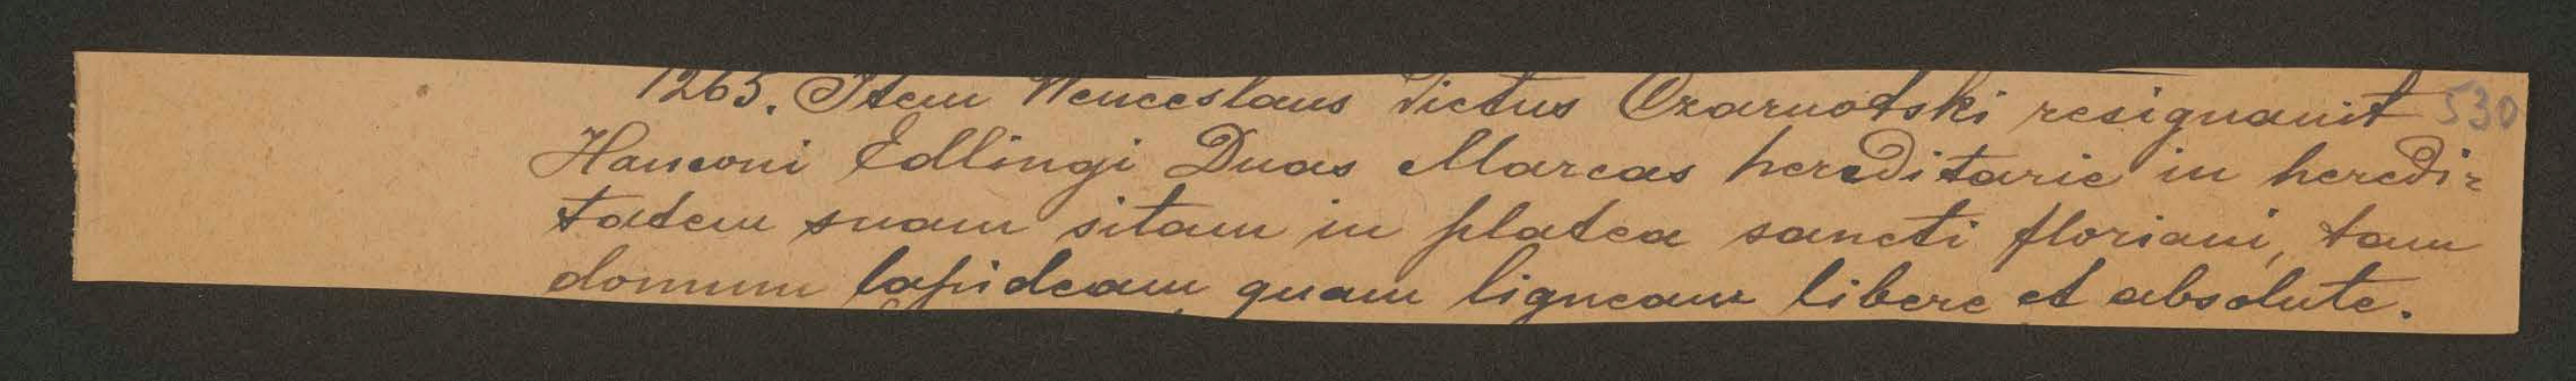 1265. Item Wenceslaus dictus Czarnotski resignauit 530
Hanconi Edlingi Duas Marcas hereditarie in heredi-
tatem suam sitam in platea sancti floriani, tam
domum lapideam, quam ligneam libere et absolute.